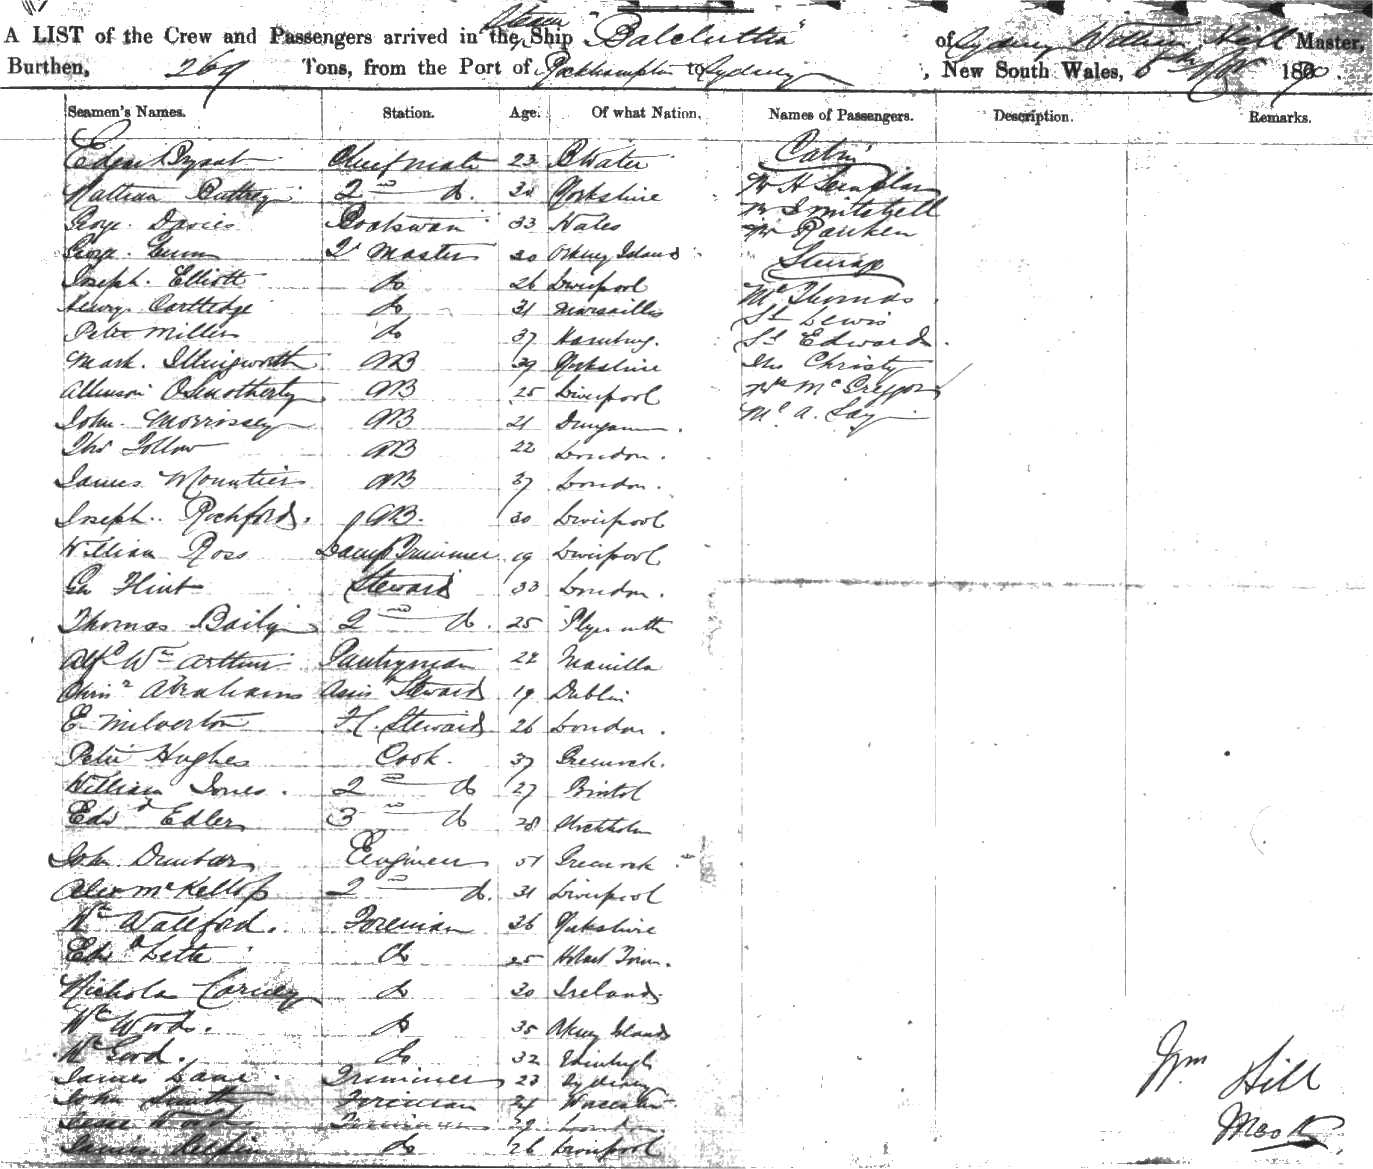 A LIST of the Crew and Passengers arrived in the Steam Ship "Balclutha" of Sydney William Hill Master,
Burthen, 269 Tons, from the Port of Rockhampton to Sydney, New South Wales, 6th Nov 1870.
Seamen's Names. Station. Age. Of what Nation. Names of Passengers. Description. Remarks.
Chief Mate 23 Cabin
2nd do. Yorkshire Mr H
Geoge. Davies Boatswain 33 Wales Mr S Mitchell
Geoge. Gunn Qr Master 20 Orkney Island Mr
Joseph. Elliott do 26 Liverpool Steerage
Henry do 31 Marsailles Mc Thomas
Peter Miller do 37 Hamburg. St Lewis
Mark. Illingworth AB 39 Yorkshire St Edward
Osmotherly AB 25 Liverpool Jno Christy
John. Morrissey AB 21 Wm McGregor
Thos Follow AB 22 London. Mc A. Lay
James Mountier AB 37 London.
Joseph. Rochford. AB. 30 Liverpool
William Ross Lamp Trimmer 19 Liverpool
Geo Flint Steward 33 London.
Thomas Baily 2nd do. 25 Plymouth
Alfd Wm Arthur Pantryman 22 Manilla
Abrahams Assis Steward 19 Dublin
E. Milverton F.C. Steward 26 London.
Peter Hughes Cook. 37 Greenock.
William Jones. 2nd do 27 Bristol
Edwd Edler 3rd do 28 Stockholm
John Dunbar Engineer 51 Greenock
Alex McKellop 2nd do. 31 Liverpool
Wm Wallford. Foreman 36 Yorkshire
Edwd do 25 Hobart Town.
Nicholas Carney do 30 Ireland.
Wm Woods. do 35 Orkney Islands
Wm do 32 Edinburgh
James Lane Trimmer 23 Sydney
John Smith Foreman Worcester
Jesse Woods London
James do 26 Liverpool
Wm Hill
Master